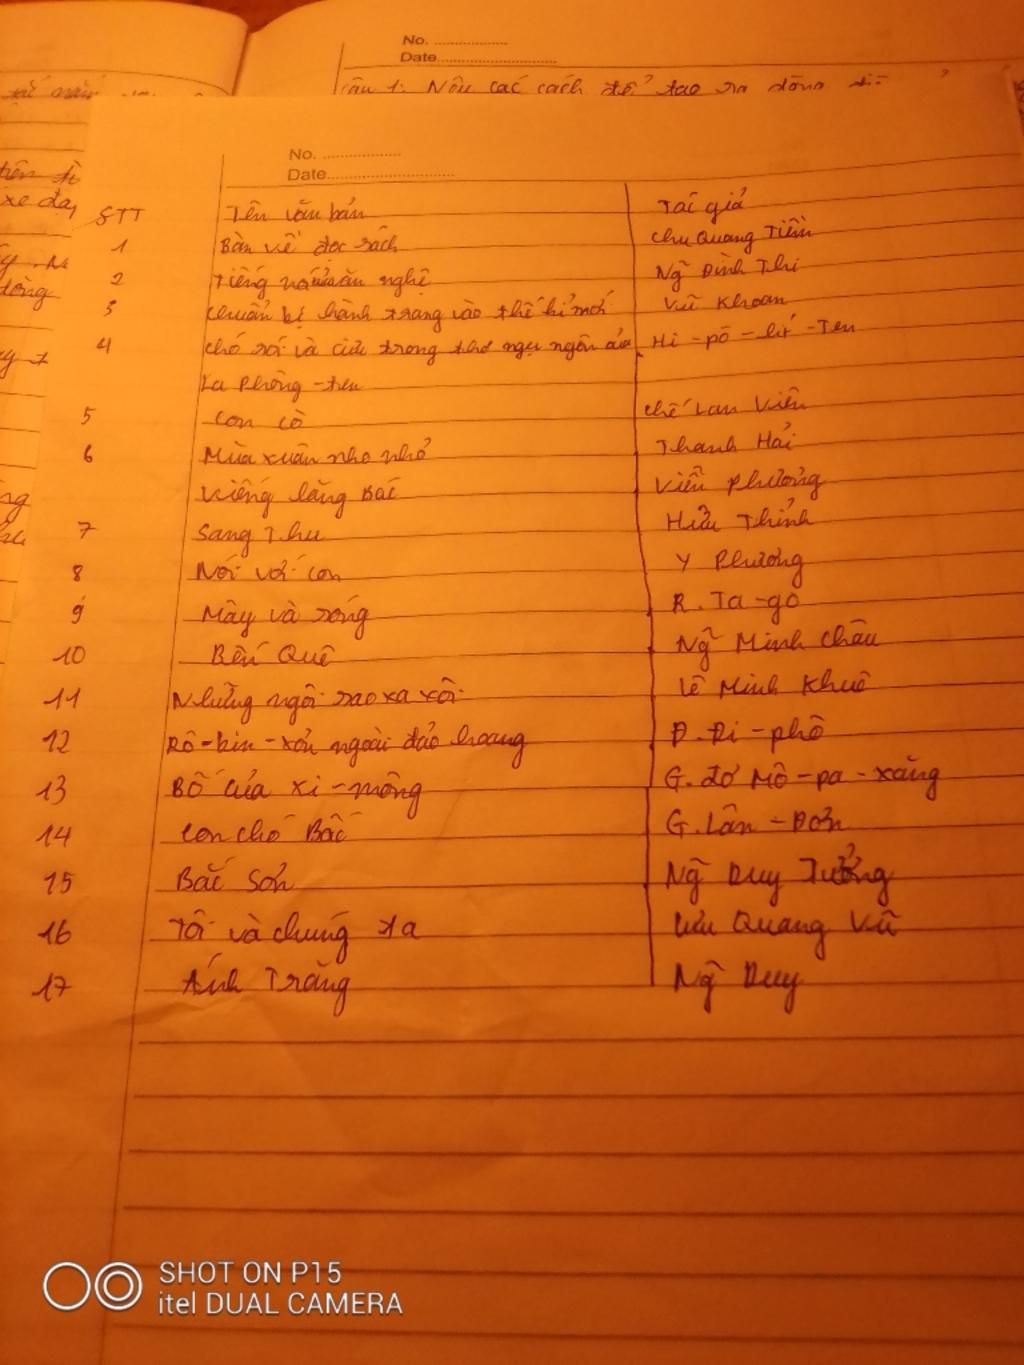 No. ..................
Date..............................
Câu 1: Nêu các cách để tạo ra dòng
No. ..................
Date..............................
STT Tên văn bản Tác giả
1 Bàn về đọc sách Chu Quang Tiềm
2 Tiếng nói của văn nghệ Ng~ Đình Thi
3 Chuẩn bị hành trang vào thế kỉ mới Vũ Khoan
4 Chó sói và cừu trong thơ ngụ ngôn của Hi-pô-lít-Ten
La Phông-ten
5 Con cò Chế Lan Viên
6 Mùa xuân nho nhỏ Thanh Hải
Viếng lăng Bác Viễn Phương
7 Sang Thu Hữu Thỉnh
8 Nói với con Y Phương
9 Mây và sóng R. Ta-go
10 Bến Quê Ng~ Minh Châu
11 Những ngôi sao xa xôi Lê Minh Khuê
12 Rô-bin-xơn ngoài đảo hoang Đ. Đi-phô
13 Bố của Xi-mông G. đơ Mô-pa-xăng
14 Con chó Bấc G. Lân-Đơn
15 Bắc Sơn Ng~ Duy Tưởng
16 Tôi và chúng ta Lưu Quang Vũ
17 Ánh Trăng Ng~ Duy
SHOT ON P15
itel DUAL CAMERA